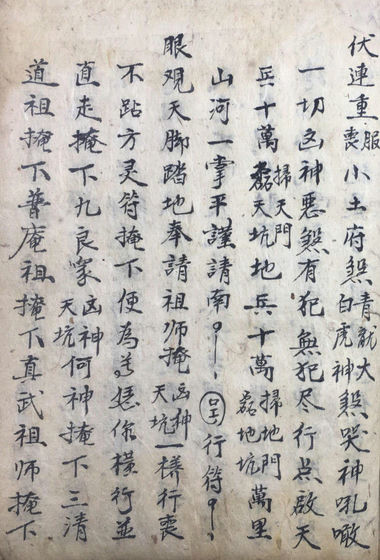 伏連重喪服小土府煞青龍大白虎神煞哭神吼噉
一切凶神惡煞有犯無犯尽行点啟天
兵十萬掃天門磊天坑地兵十萬掃地門磊地坑萬里
山河一掌平謹請南行符
眼观天脚踏地奉請祖师掩凶神天坑一樣行喪
不跕方灵符掩下便為恁你橫行並
直走掩下九良家凶神天坑何神掩下三清
道祖掩下普庵祖掩下真武祖师掩下